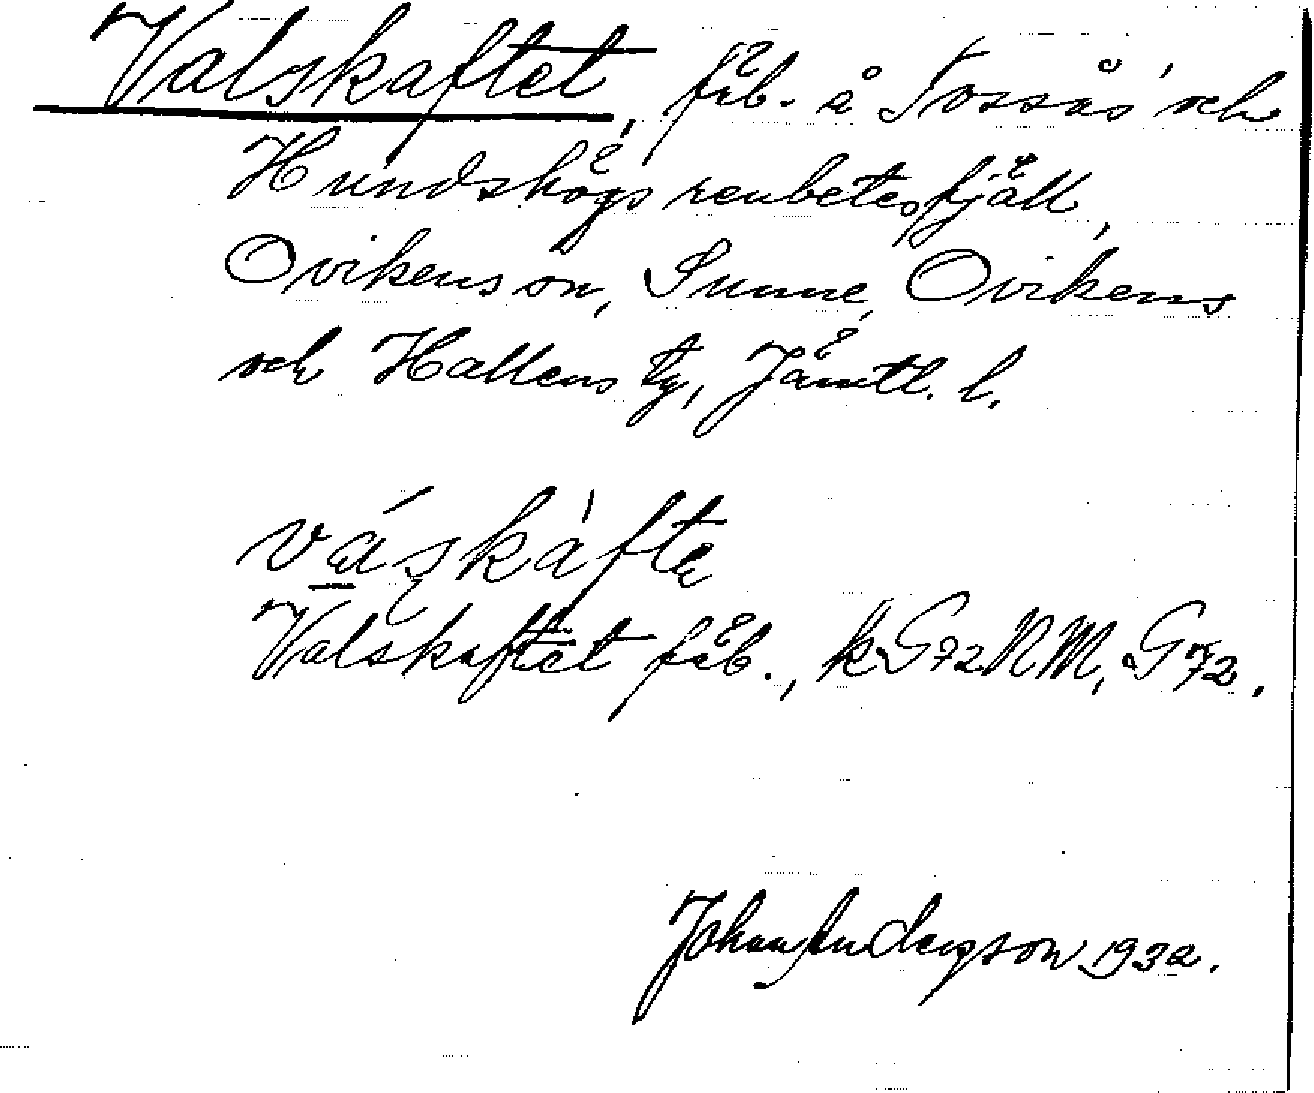 Valskaftet, fäb. å Tossås och
Hundshögs renbetesfjäll,
Ovikens sn, Sunne, Ovikens
och Hallens tg, Jämtl. l.
váskàfte
Valskaftet fäb., k G 72 NM, G 72.
Johan Anderson 1932.